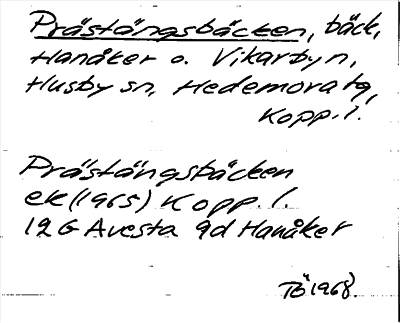 Prästängsbäcken, bäck,
Hanåker o. Vikarbyn,
Husby sn, Hedemora tg,
Kopp. l.
Prästängsbäcken
ek (1965) Kopp. l.
12G Avesta 9d Hanåker
TÖ 1968.